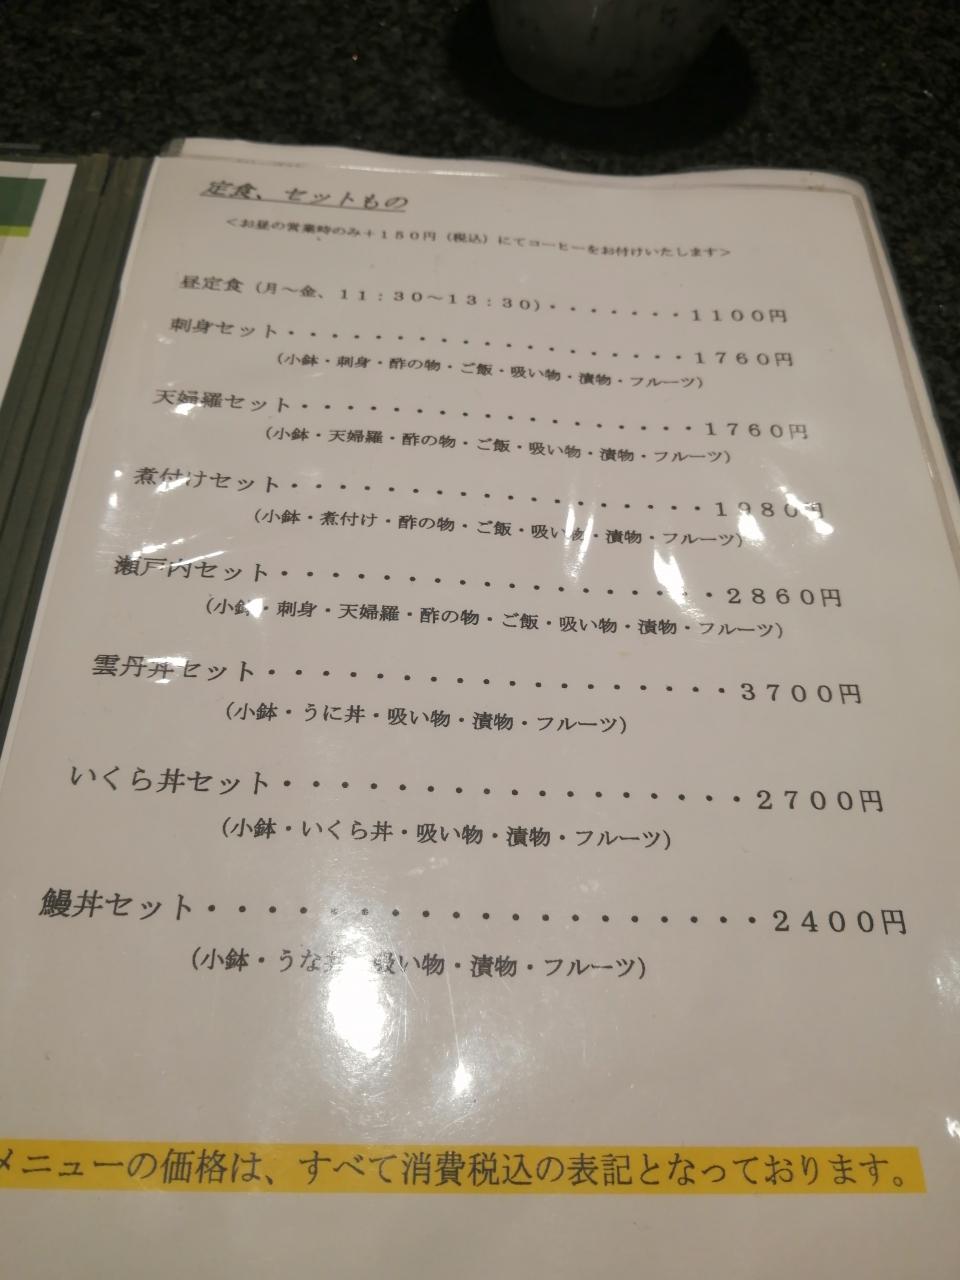 定食、セットもの
＜お昼の営業時のみ＋１５０円（税込）にてコーヒーをお付けいたします＞
昼定食（月～金、１１：３０～１３：３０）・・・・・・・１１００円
刺身セット・・・・・・・・・・・・・・・・・・１７６０円
（小鉢・刺身・酢の物・ご飯・吸い物・漬物・フルーツ）
天婦羅セット・・・・・・・・・・・・・・・・・１７６０円
（小鉢・天婦羅・酢の物・ご飯・吸い物・漬物・フルーツ）
煮付けセット・・・・・・・・・・・・・・・・・１９８０円
（小鉢・煮付け・酢の物・ご飯・吸い物・漬物・フルーツ）
瀬戸内セット・・・・・・・・・・・・・・・・・２８６０円
（小鉢・刺身・天婦羅・酢の物・ご飯・吸い物・漬物・フルーツ）
雲丹丼セット・・・・・・・・・・・・・・・・・３７００円
（小鉢・うに丼・吸い物・漬物・フルーツ）
いくら丼セット・・・・・・・・・・・・・・・・・２７００円
（小鉢・いくら丼・吸い物・漬物・フルーツ）
鰻丼セット・・・・・・・・・・・・・・・・・・・２４００円
（小鉢・うな丼・吸い物・漬物・フルーツ）
メニューの価格は、すべて消費税込の表記となっております。